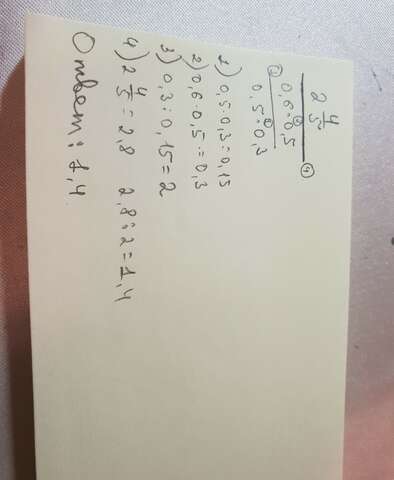 2 4/5
0,6·0,5
0,5·0,3
1) 0,5·0,3=0,15
2) 0,6·0,5=0,3
3) 0,3:0,15=2
4) 2 4/5=2,8 2,8:2=1,4
Ответ: 1,4.